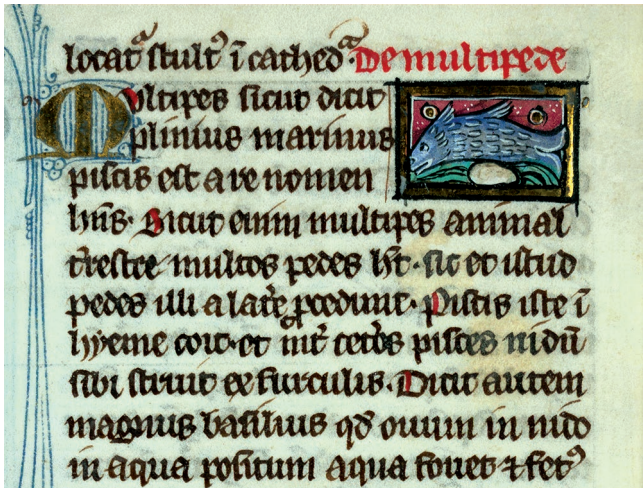 locatᵃ stultꝰ ī cathedᵃ De multipede
Multipes sicut dicit
plinius marinus
piscis est a re nomen
hn̄s. Sicut enim multipes animal
t̉restre multos pedes hт̄. sic et istud
pedes illi a lat̉e ꝓcedunt. Piscis iste ī
hyeme coit. et int̉ cet̉os pisces nidū
sibi struit ex furculis. Dicit autem
magnus basilius qd̄ ouum in nido
in aqua positum aqua fouet ⁊ fetꝰ